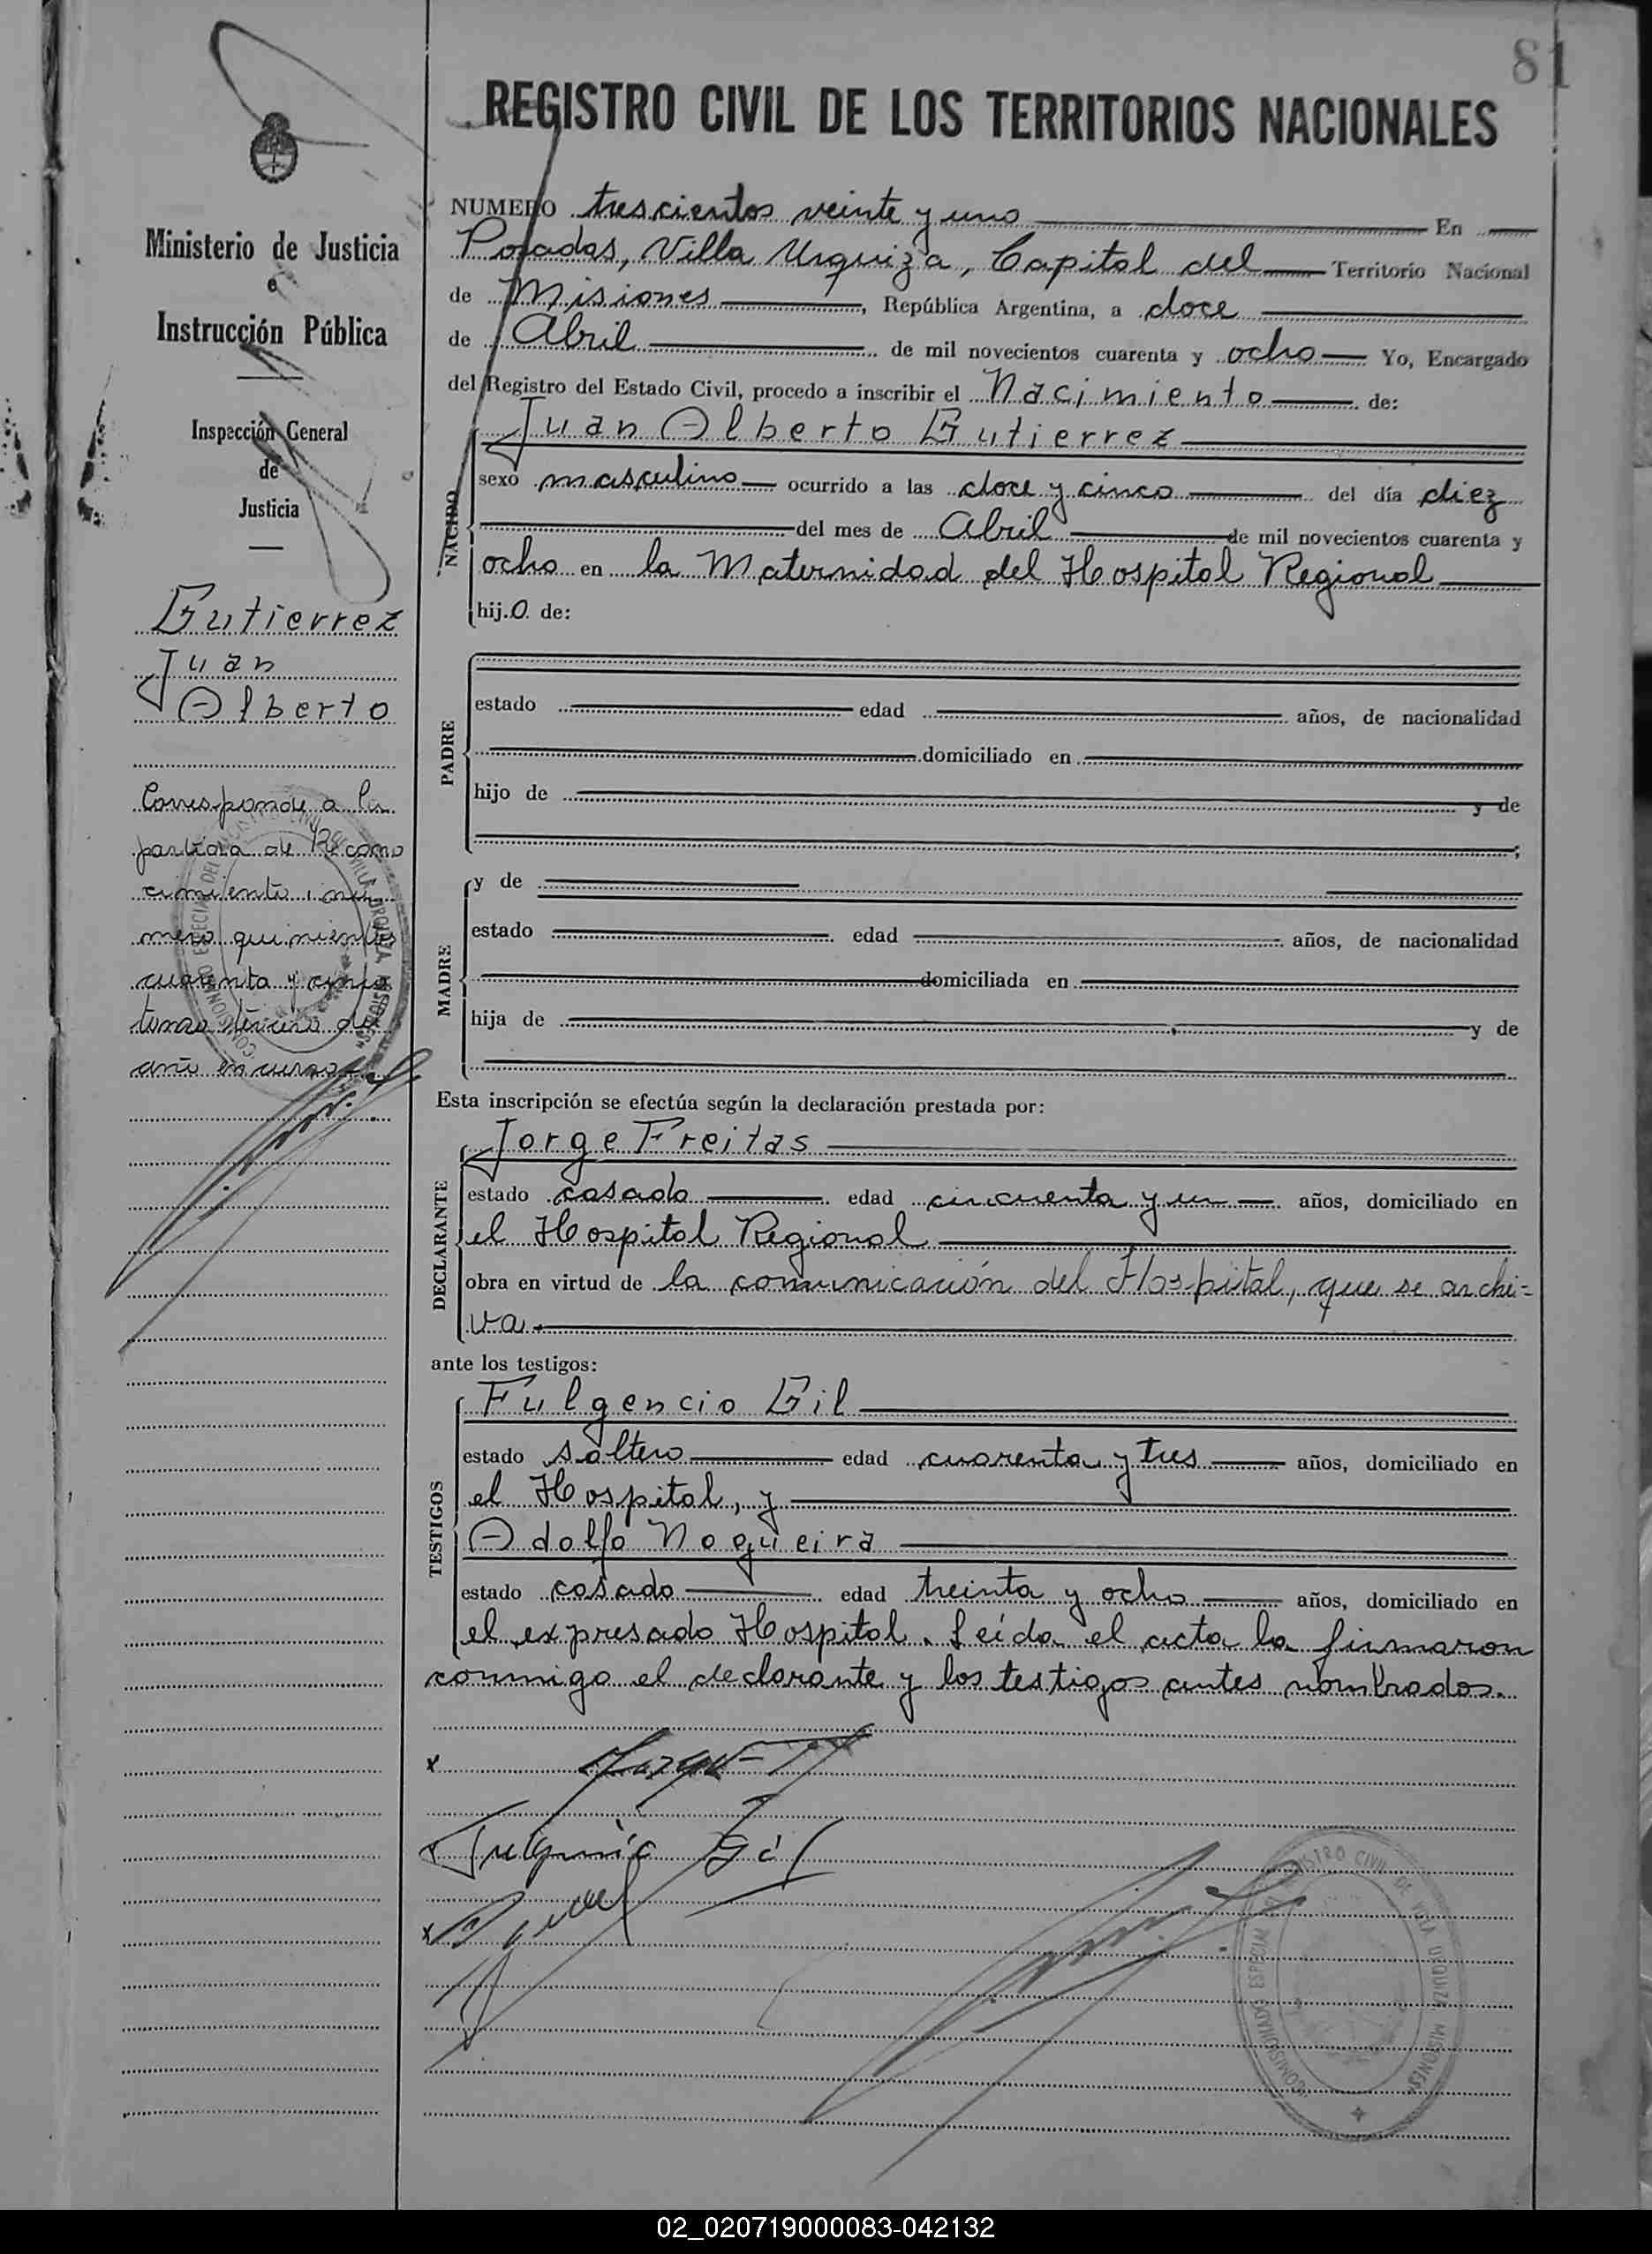 81
REGISTRO CIVIL DE LOS TERRITORIOS NACIONALES
Ministerio de Justicia
e
Instrucción Pública
Inspección General
de
Justicia
Gutierrez
Juan
Alberto
Corresponde a la
partida de Recono
cimiento, nu
mero quinientos
cuarenta y cinco
tomo tercero del
año en curso
NUMERO trescientos veinte y uno En
Posadas, Villa Urquiza, Capital del Territorio Nacional
de Misiones, República Argentina, a doce
de Abril de mil novecientos cuarenta y ocho Yo, Encargado
del Registro del Estado Civil, procedo a inscribir el Nacimiento de:
NACIDO
Juan Alberto Gutierrez
sexo masculino ocurrido a las doce y cinco del día diez
del mes de Abril de mil novecientos cuarenta y
ocho en la Maternidad del Hospital Regional
hijo de:
PADRE
estado edad años, de nacionalidad
domiciliado en
hijo de y de
;
MADRE
y de
estado edad años, de nacionalidad
domiciliada en
hija de y de
Esta inscripción se efectúa según la declaración prestada por:
DECLARANTE
Jorge Freitas
estado casado edad cincuenta y un años, domiciliado en
el Hospital Regional
obra en virtud de la comunicación del Hospital, que se archi=
va.
ante los testigos:
TESTIGOS
Fulgencio Gil
estado soltero edad cuarenta y tres años, domiciliado en
el Hospital, y
Adolfo Nogueira
estado casado edad treinta y ocho años, domiciliado en
el expresado Hospital. Leída el acta la firmaron
conmigo el declarante y los testigos antes nombrados.
Fulgencio Gil
COMISIONADO ESPECIAL DEL REGISTRO CIVIL DE VILLA URQUIZA MISIONES
02_020719000083-042132